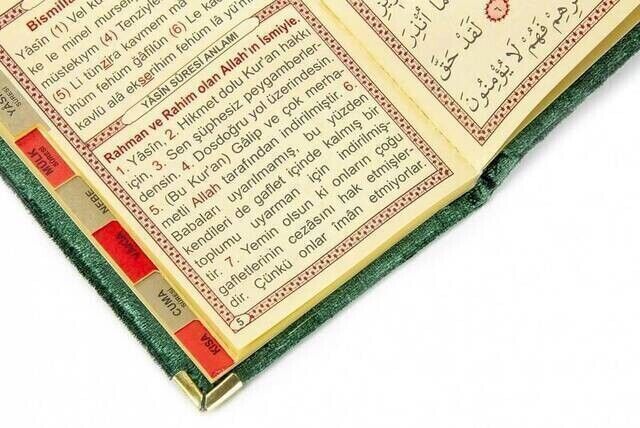 Bismillâ
Yâsîn (1) Vel ku
ke le minel mursel
müstekıym (4) Tenziyle
(5) Li tünzira kavmem
ühüm fehüm ğâfilûn (6) Le ka
kavlü alâ ekserihim fehüm lâ yü'm
YÂSÎN SÛRESİ ANLAMI
Rahman ve Rahim olan Allah'ın İsmiyle.
1. Yâsîn, 2. Hikmet dolu Kur'an hakkı
için, 3. Sen şüphesiz peygamberler-
densin. 4. Dosdoğru yol üzerindesin.
5. (Bu Kur'an) Gâlip ve çok merha-
metli Allah tarafından indirilmiştir. 6.
Babaları uyarılmamış, bu yüzden
kendileri de gaflet içinde kalmış bir
toplumu uyarman için indirilmiş-
tir. 7. Yemin olsun ki onların çoğu
gafletlerinin cezasını hak etmişler-
dir. Çünkü onlar îmân etmiyorlar.
5
YÂSİN
SÛRESİ
MÜLK
SÛRESİ
NEBE
VAKIA
CUMA
SÛRESİ
KISA
لَقَدْ حَقَّ
فَهُمْ لَا يُؤْمِنُونَ